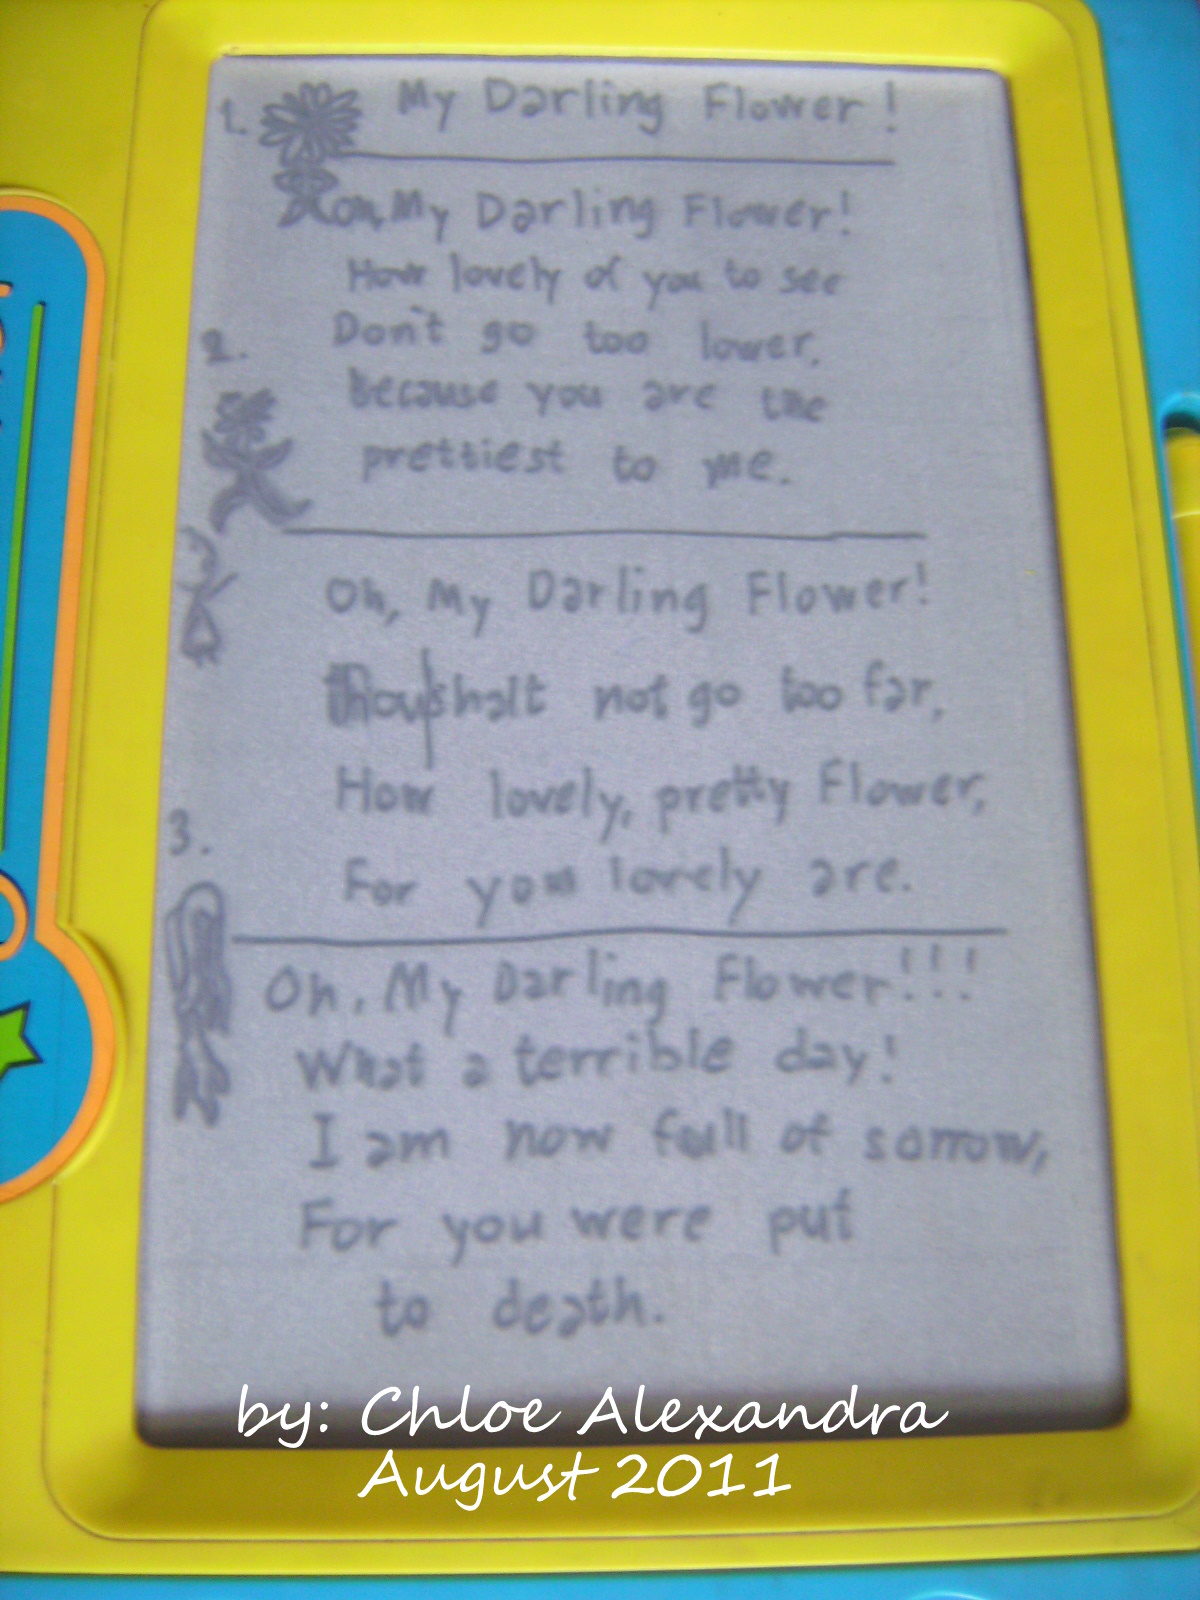 1. My Darling Flower!
Oh, My Darling Flower!
How lovely of you to see
Don't go too lower,
2.
because you are the
prettiest to me.
Oh, My Darling Flower!
thou shalt not go too far,
How lovely, pretty Flower,
3.
For you lovely are.
Oh, My Darling Flower!!!
What a terrible day!
I am now full of sorrow,
For you were put
to death.
by: Chloe Alexandra
August 2011